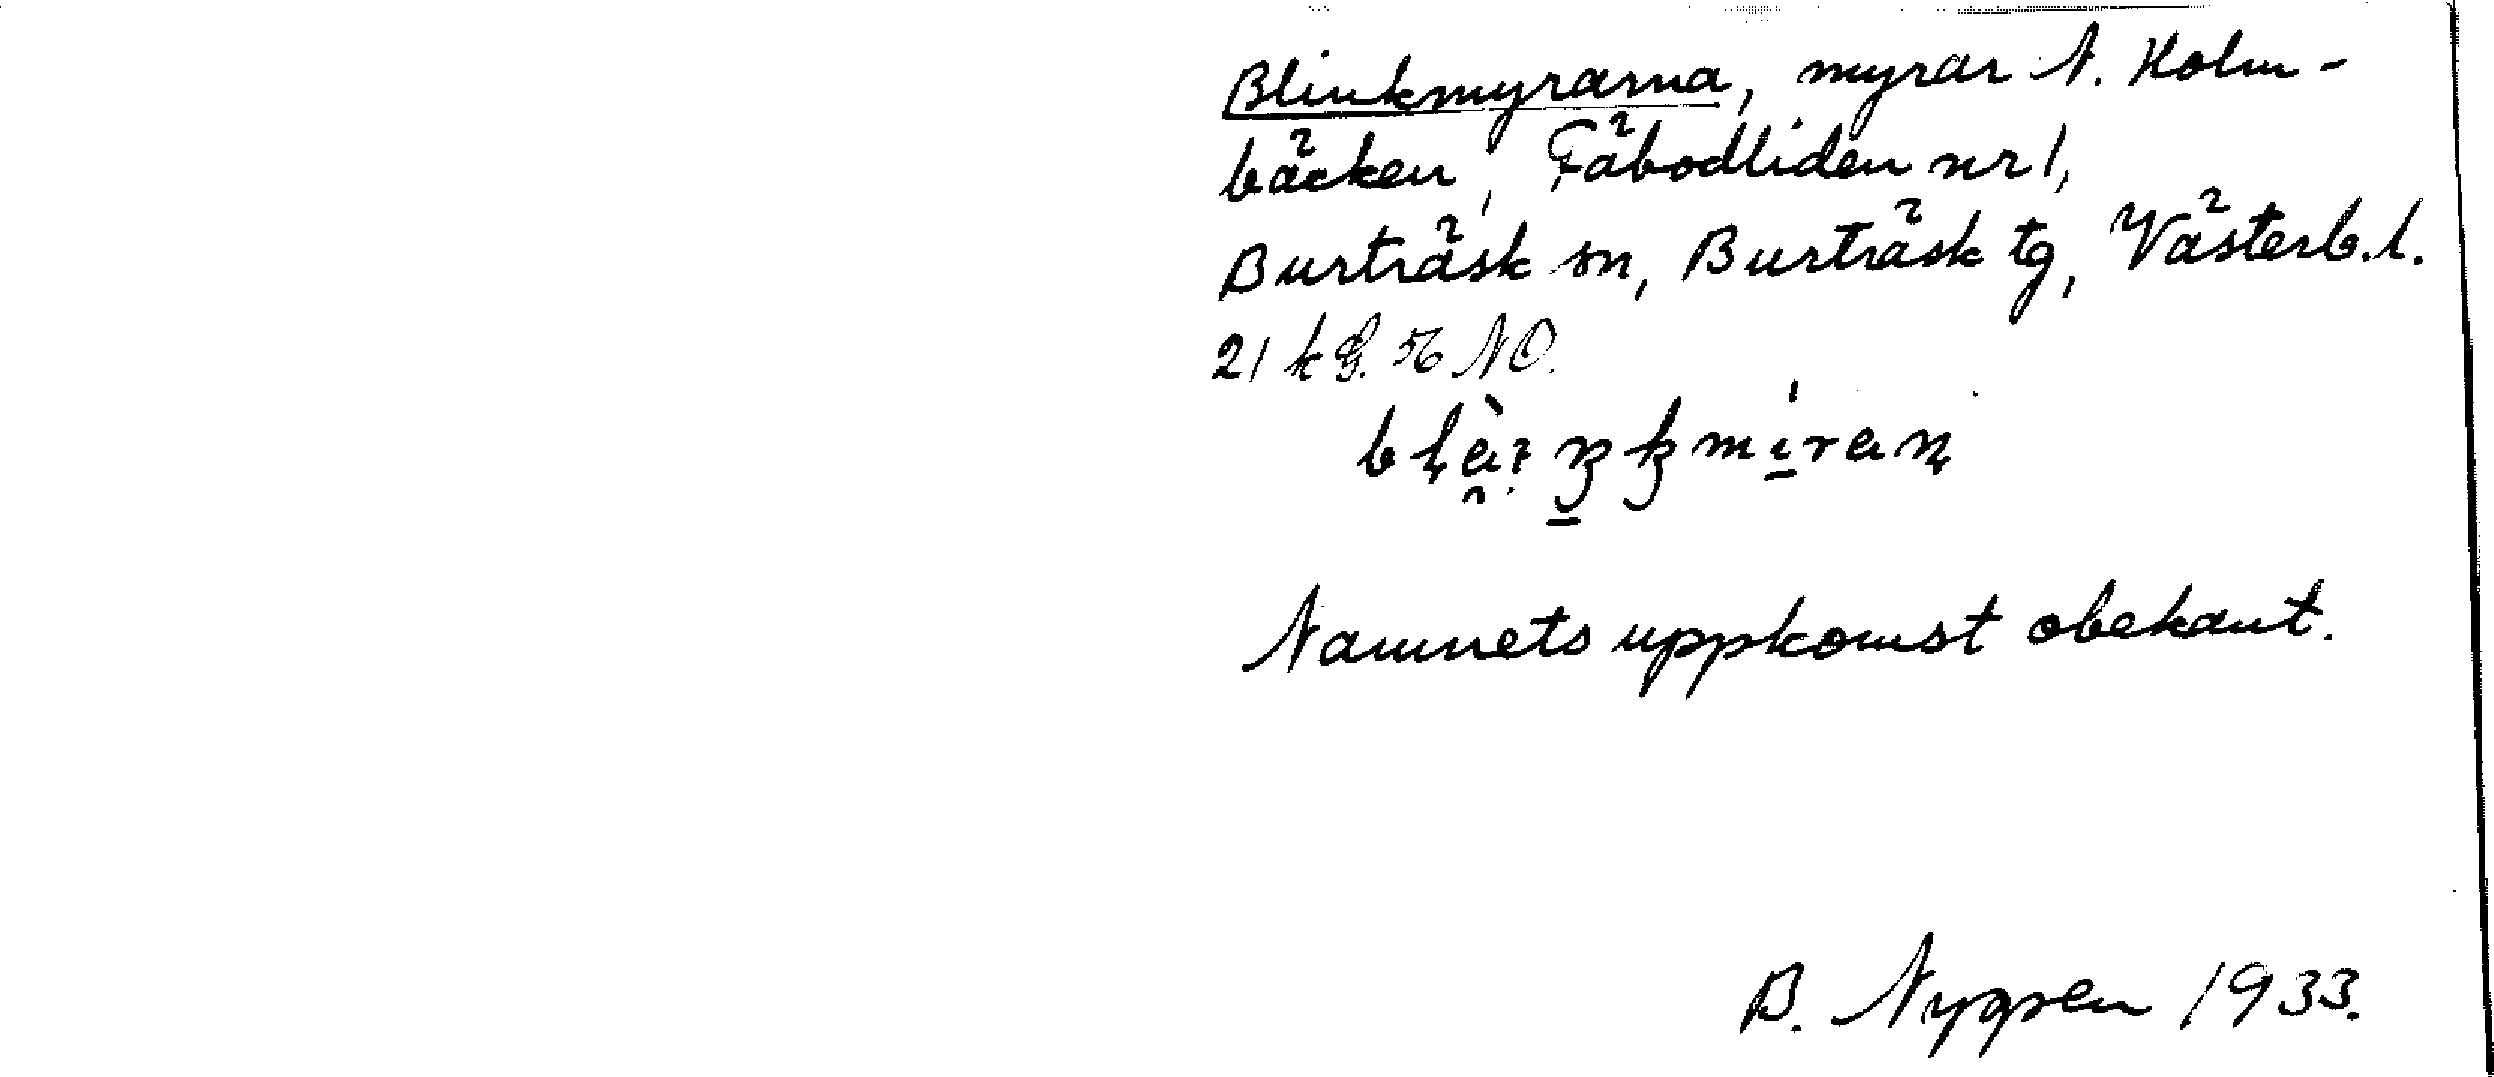 Blinkmyrarna, myrar N. Holm-
bäcken, Fäbodliden nr 1,
Burträsk sn, Burträsk tg, Västerb. l.
21 k 56 NO.
Namnets uppkomst obekant.
B. Nygren 1933.